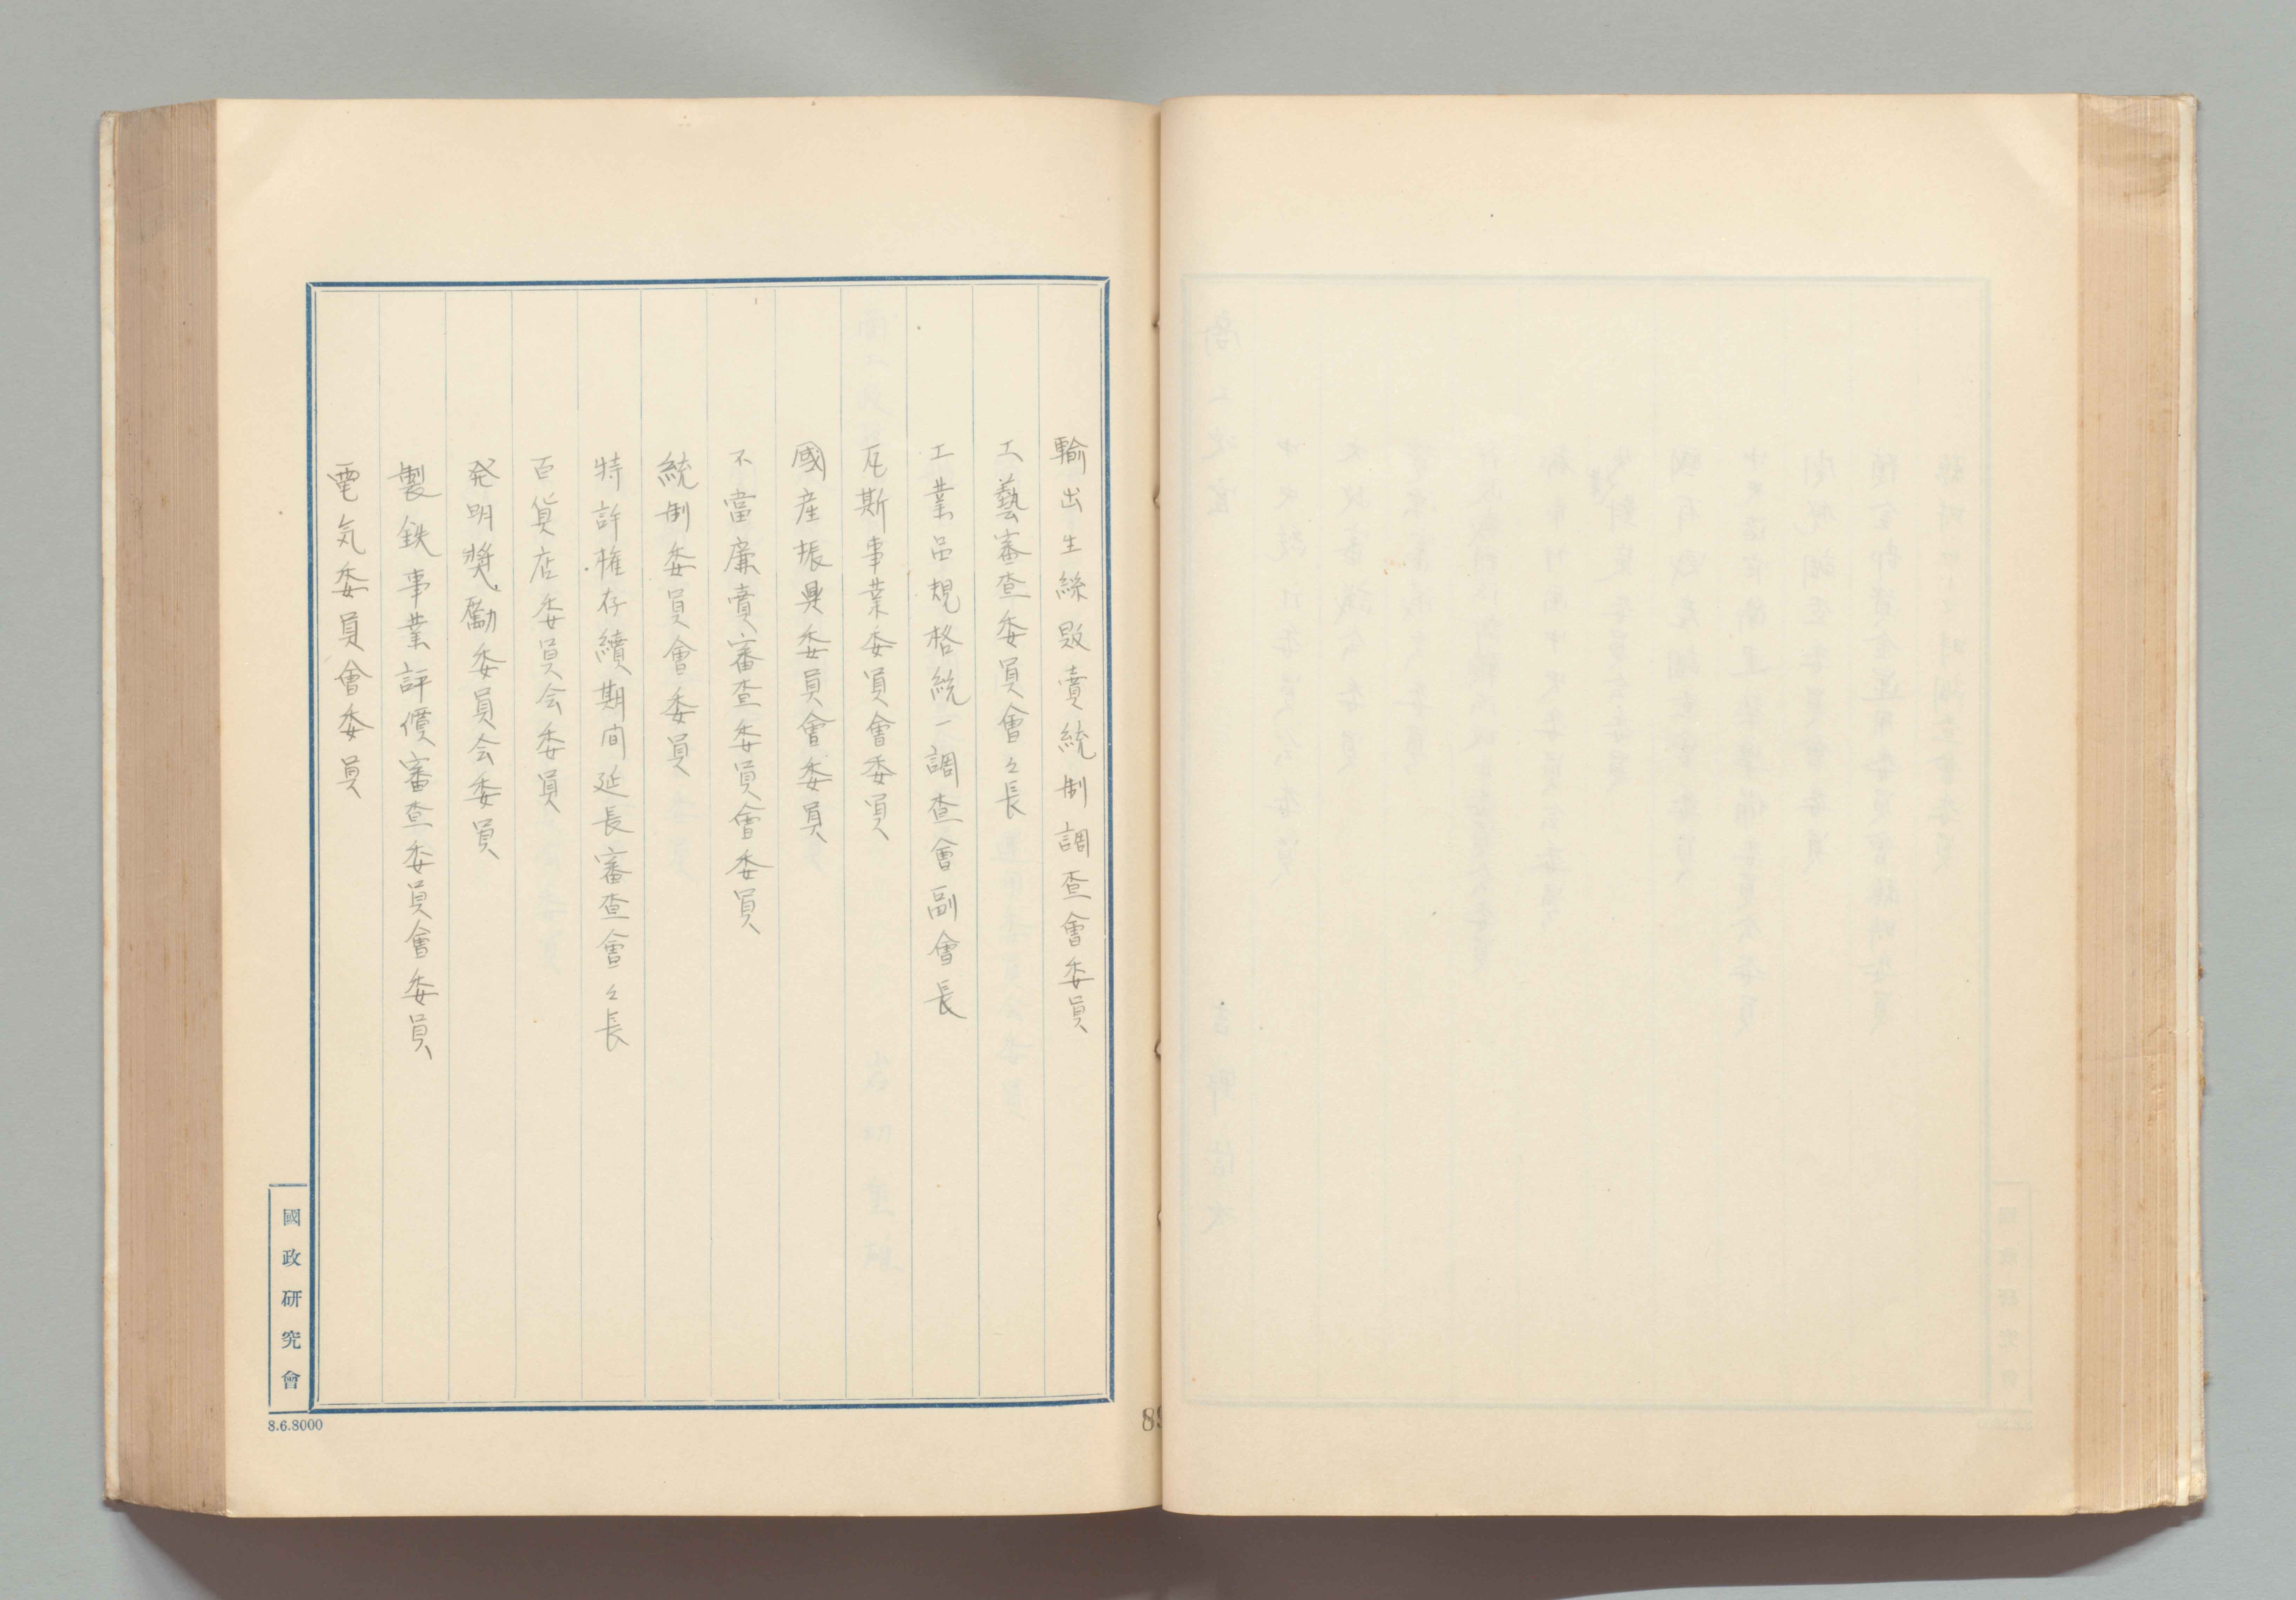 輸出生絲販賣統制調査會委員
工藝審査委員會々長
工業品規格統一調査會副會長
瓦斯事業委員會委員
國産振興委員會委員
不當廉賣審査委員會委員
統制委員會委員
特許権存續期间延長審査會々長
百貨店委員会委員
発明奬勵委員会委員
製鉄事業評價審査委員會委員
電気委員會委員
國政研究會
8.6.8000